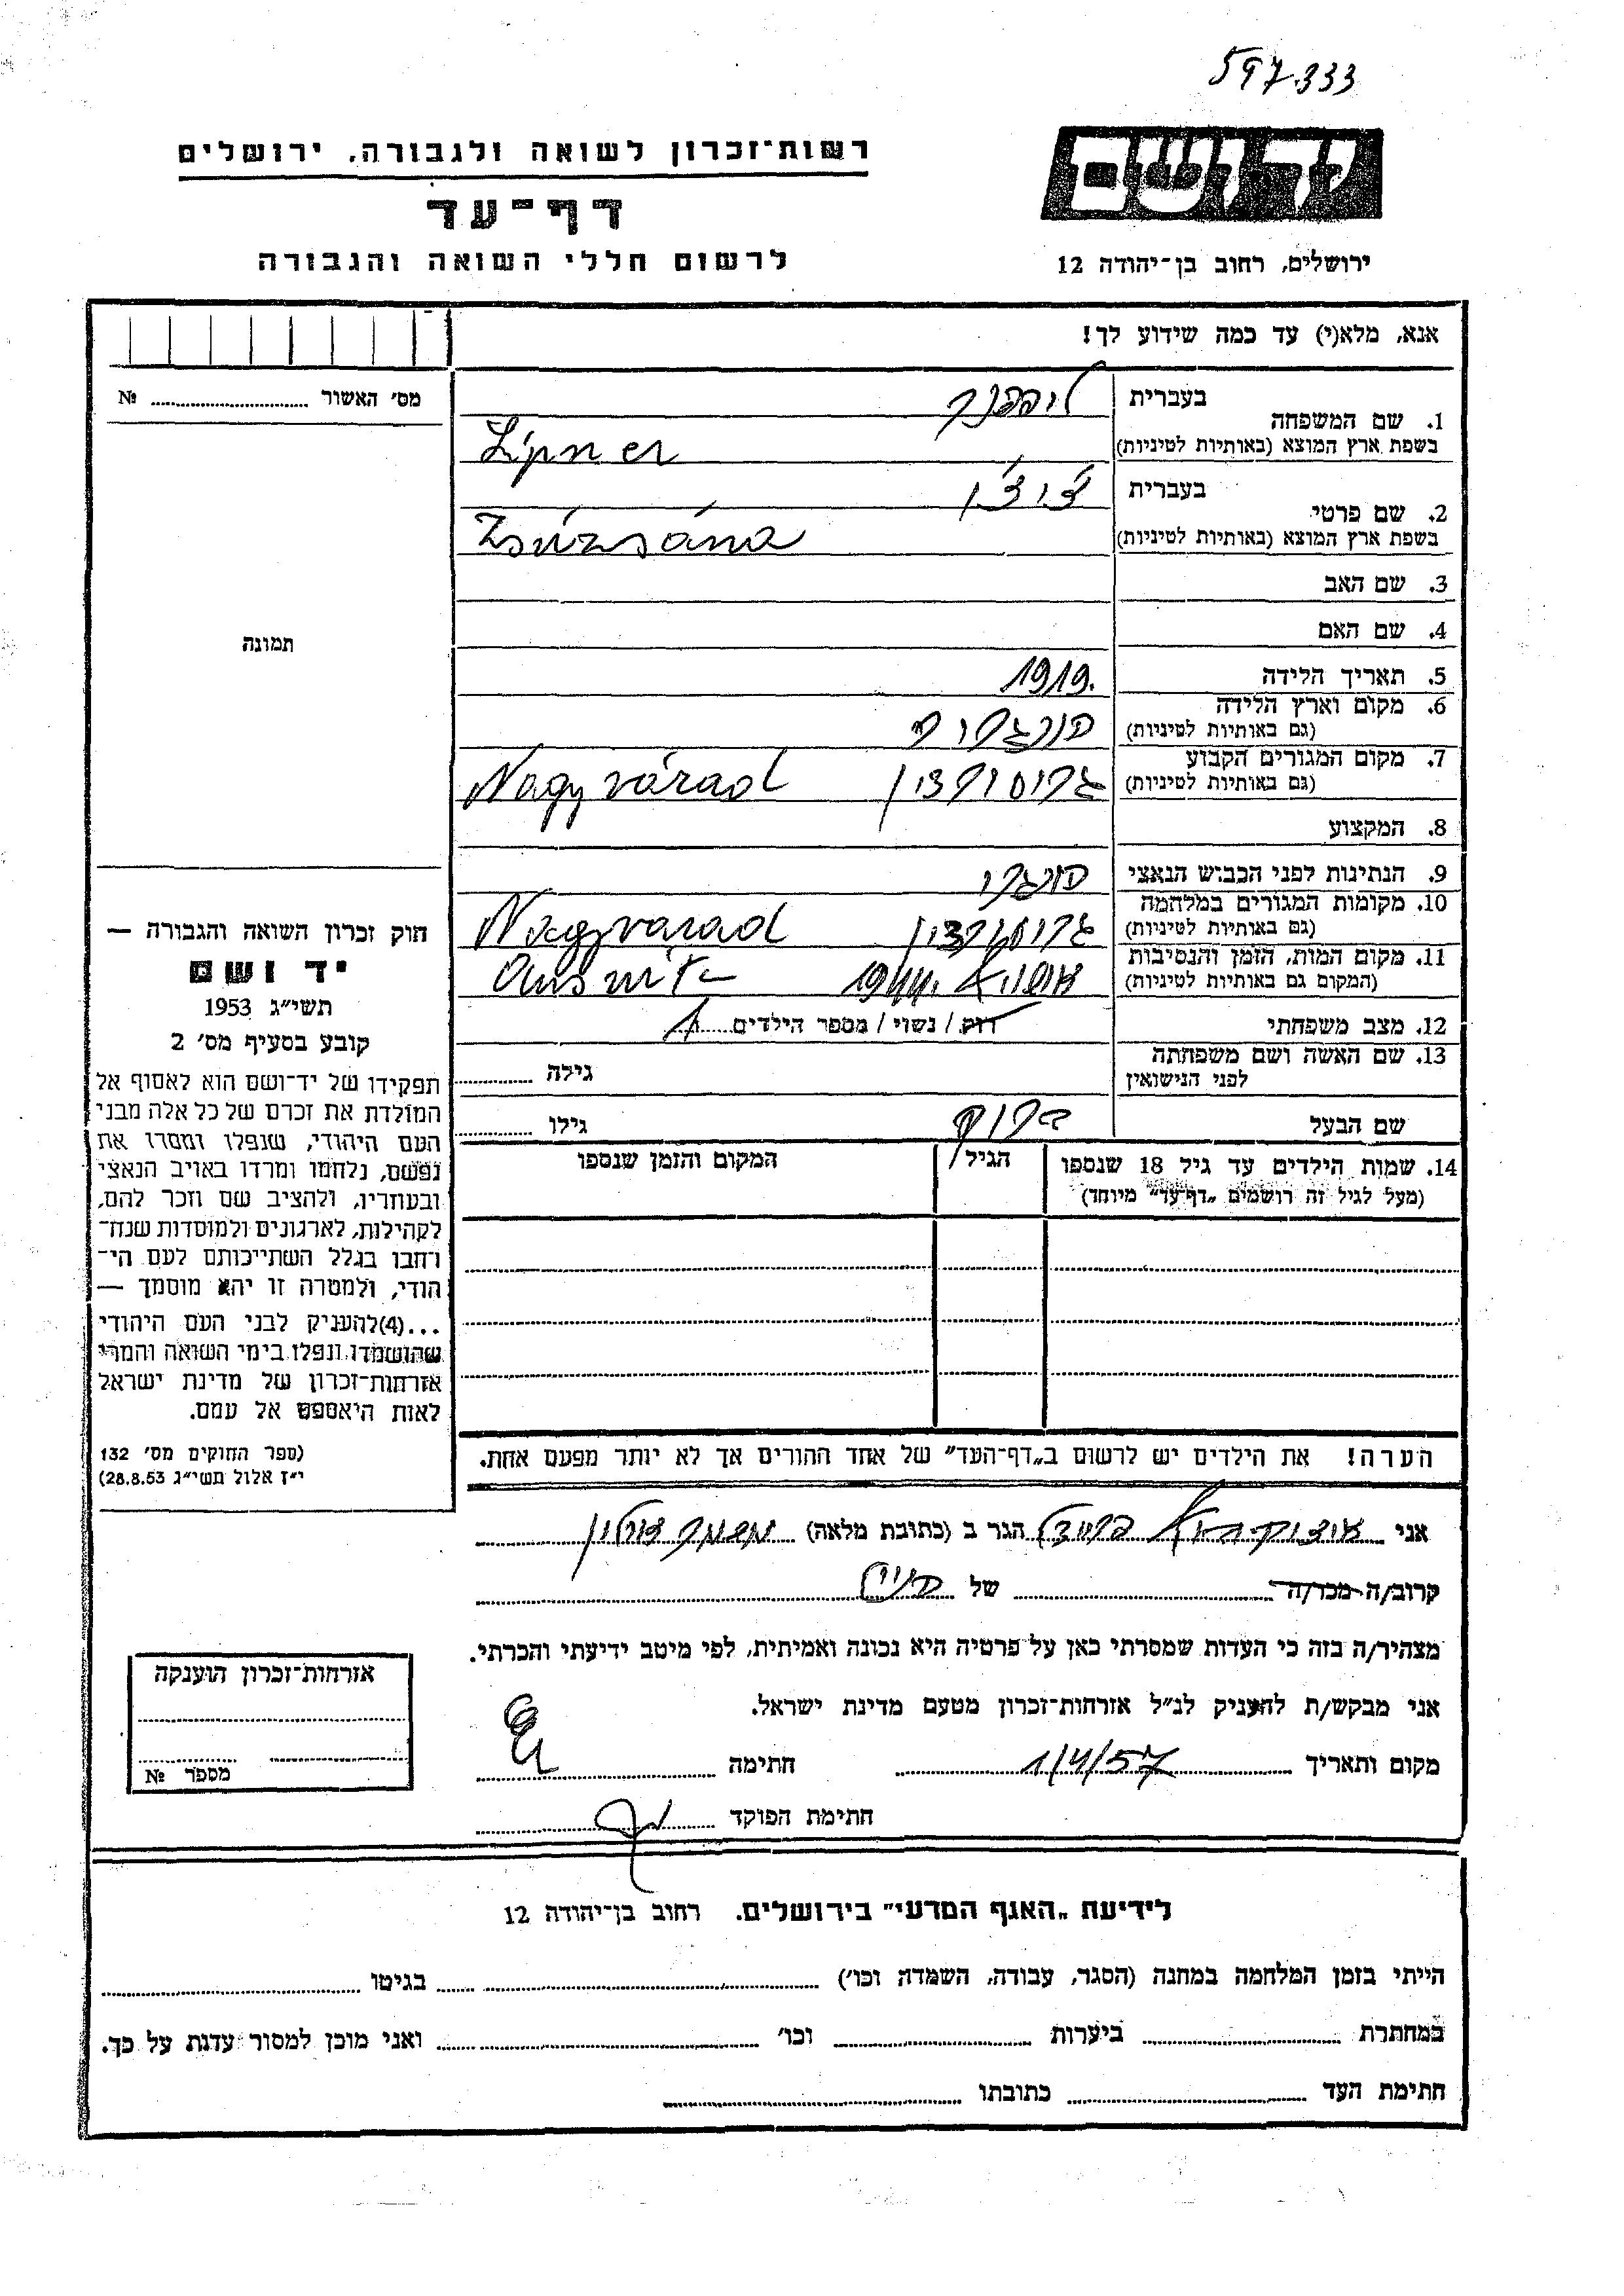 597.333
רשות־זכרון לשואה ולגבורה, ירושלים
יד ושם
דף־עד
לרשום חללי השואה והגבורה
ירושלים, רחוב בן־יהודה 12
אנא, מלא(י) עד כמה שידוע לך!
מס׳ האשור № ........
1. שם המשפחה בעברית ליפנר
בשפת ארץ המוצא (באותיות לטיניות) Lipner
2. שם פרטי בעברית
בשפת ארץ המוצא (באותיות לטיניות) Zsúzsána
3. שם האב
4. שם האם
5. תאריך הלידה 1919.
6. מקום וארץ הלידה הונגריה
(גם באותיות לטיניות)
7. מקום המגורים הקבוע גרוסורדין Nagyvárad
(גם באותיות לטיניות)
8. המקצוע
9. הנתינות לפני הכבוש הנאצי הונגרי
10. מקומות המגורים במלחמה גרוסורדין Nagyvarad
(גם באותיות לטיניות)
11. מקום המות, הזמן והנסיבות 1944
(המקום גם באותיות לטיניות)
12. מצב משפחתי רוק / נשוי / מספר הילדים 1
13. שם האשה ושם משפחתה לפני הנישואין גילה ........
שם הבעל ברוך גילו ........
14. שמות הילדים עד גיל 18 שנספו הגיל המקום והזמן שנספו
(מעל לגיל זה רושמים „דף־עד״ מיוחד)
הערה! את הילדים יש לרשום ב„דף־העד״ של אחד ההורים אך לא יותר מפעם אחת.
תמונה
חוק זכרון השואה והגבורה —
יד ושם
תשי״ג 1953
קובע בסעיף מס׳ 2
תפקידו של יד־ושם הוא לאסוף אל
המולדת את זכרם של כל אלה מבני
העם היהודי, שנפלו ומסרו את
נפשם, נלחמו ומרדו באויב הנאצי
ובעוזריו, ולהציב שם וזכר להם,
לקהילות, לארגונים ולמוסדות שנח־
רחבו בגלל השתייכותם לעם הי־
הודי, ולמטרה זו יהא מוסמך —
...(4) להעניק לבני העם היהודי
שהושמדו ונפלו בימי השואה והמרי
אזרחות־זכרון של מדינת ישראל
לאות היאספם אל עמם.
(ספר החוקים מס׳ 132
י״ז אלול תשי״ג 28.8.53)
אני הגר ב (כתובת מלאה)
קרוב/ה מכר/ה ........ של
מצהיר/ה בזה כי העדות שמסרתי כאן על פרטיה היא נכונה ואמיתית, לפי מיטב ידיעתי והכרתי.
אני מבקש/ת להעניק לנ״ל אזרחות־זכרון מטעם מדינת ישראל.
מקום ותאריך 1/4/57 חתימה
חתימת הפוקד
אזרחות־זכרון הוענקה
מספר №
לידיעת „האגף המדעי״ בירושלים. רחוב בן־יהודה 12
הייתי בזמן המלחמה במחנה (הסגר, עבודה, השמדה וכו׳) ........ בגיטו ........
במחתרת ........ ביערות ........ וכו׳ ........ ואני מוכן למסור עדות על כך.
חתימת העד ........ כתובתו ........